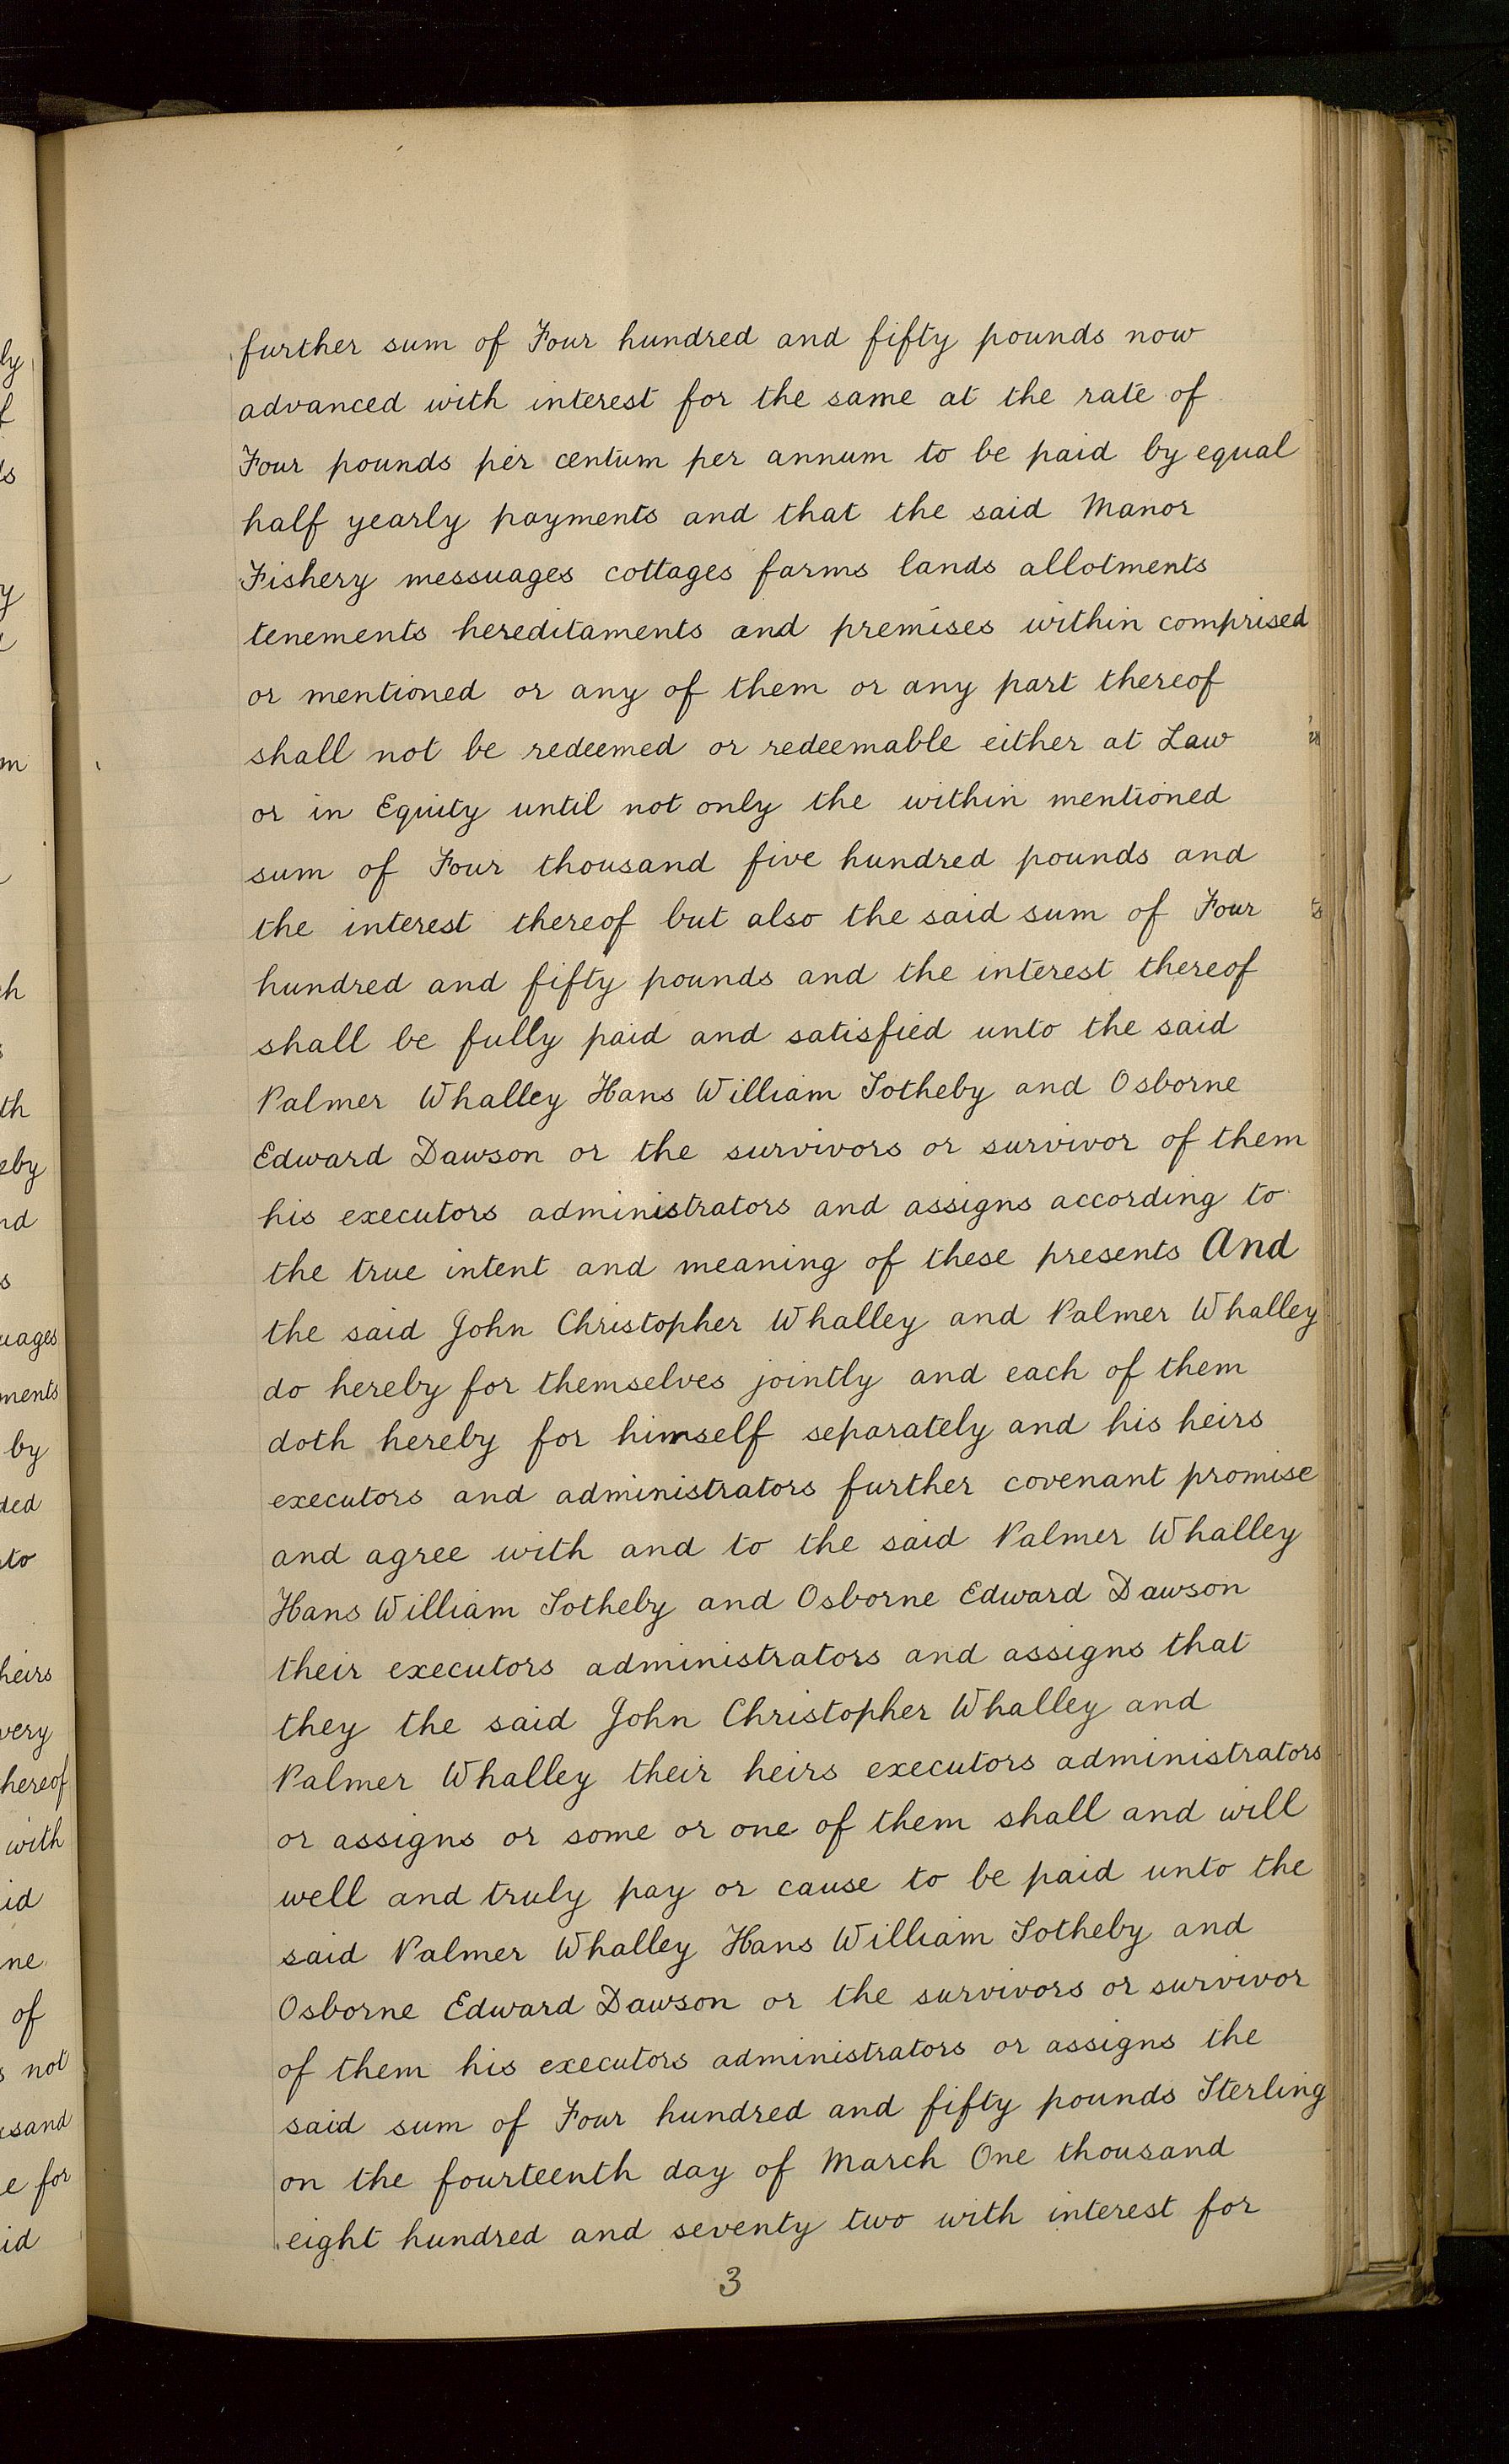 further sum of Four hundred and fifty pounds now
advanced with interest for the same at the rate of
Four pounds per centum per annum to be paid by equal
half yearly payments and that the said Manor
Fishery messuages cottages farms lands allotments
tenements hereditaments and premises within comprised
or mentioned or any of them or any part thereof
shall not be redeemed or redeemable either at Law
or in Equity until not only the within mentioned
sum of Four thousand five hundred pounds and
the interest thereof but also the said sum of Four
hundred and fifty pounds and the interest thereof
shall be fully paid and satisfied unto the said
Palmer Whalley Hans William Sotheby and Osborne
Edward Dawson or the survivors or survivor of them
his executors administrators and assigns according to
the true intent and meaning of these presents And
the said John Christopher Whalley and Palmer Whalley
do hereby for themselves jointly and each of them
doth hereby for himself separately and his heirs
executors and administrators further covenant promise
and agree with and to the said Palmer Whalley
Hans William Sotheby and Osborne Edward Dawson
their executors administrators and assigns that
they the said John Christopher Whalley and
Palmer Whalley their heirs executors administrators
or assigns or some or one of them shall and will
well and truly pay or cause to be paid unto the
said Palmer Whalley Hans William Sotheby and
Osborne Edward Dawson or the survivors or survivor
of them his executors administrators or assigns the
said sum of Four hundred and fifty pounds Sterling
on the fourteenth day of March One thousand
eight hundred and seventy two with interest for
3